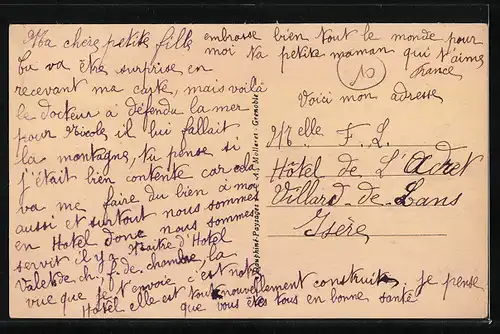 Ma chère petite fille
tu va être surprise en
recevant ma carte, mais voilà
le docteur à défendu la mer
pour Nicole il lui fallait
la montagne, tu pense si
j'était bien contente car cela
va me faire du bien à moi
aussi et surtout nous sommes
en Hôtel donc nous sommes
servit il y a Maître d'Hôtel
Valet de ch, f. de chambre, la
vue que je t'envoie c'est notre
Hôtel elle est tout nouvellement construite, je pense
que vous êtes tous en bonne santé
embrasse bien tout le monde pour
moi ta petite maman qui t'aime
France
10
Voici mon adresse
Melle F. L.
Hôtel de L'Adret
Villard-de-Lans
Isère
Dauphiné-Paysages A. Mollaret - Grenoble